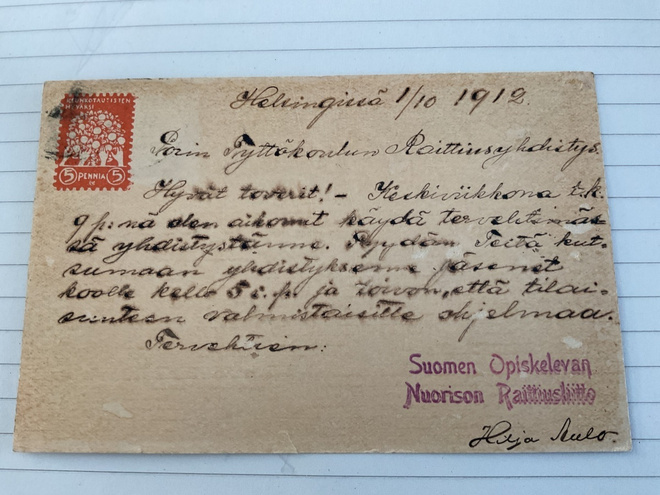 KEUHKOTAUTISTEN
HYVÄKSI
5 PENNIÄ 5
Helsingissä 1/10 1912.
Porin Tyttökoulun Raittiusyhdistys.
Hyvät toverit! – Keskiviikkona t.k.
9 p:nä olen aikonut käydä tervehtimäs-
sä yhdistystänne. Pyydän Teitä kut-
sumaan yhdistyksenne jäsenet
koolle kello 5 i.p. ja toivon, että tilai-
suuteen valmistaisitte ohjelmaa.
Tervehtien:
Suomen Opiskelevan
Nuorison Raittiusliitto
Hilja